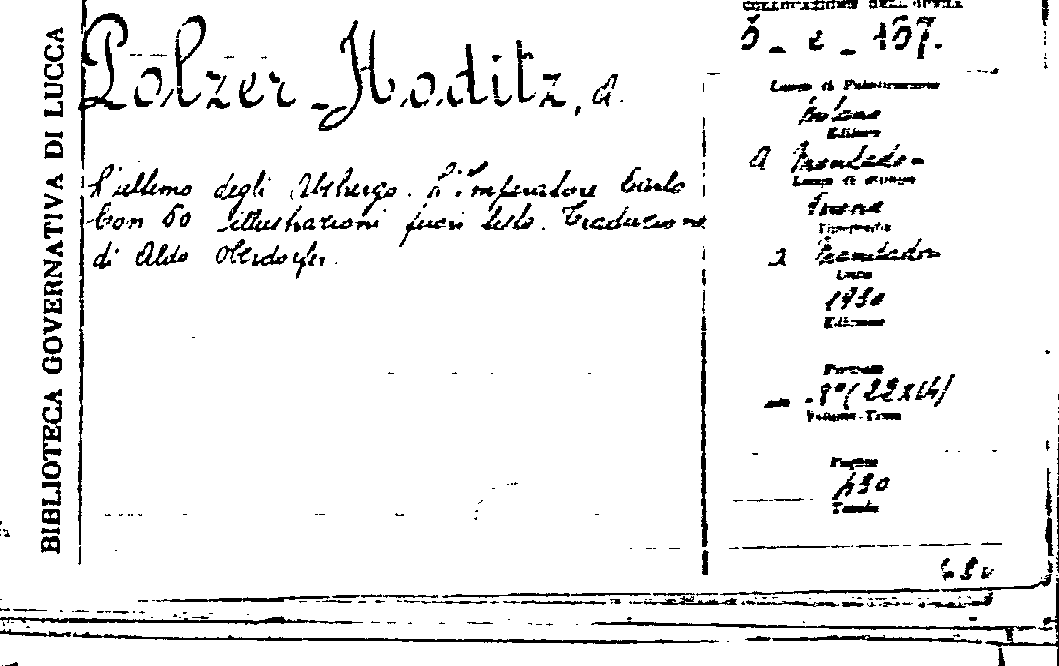 BIBLIOTECA GOVERNATIVA DI LUCCA
Polzer-Hoditz, A.
L'ultimo degli Absburgo. L'Imperatore Carlo
Con 60 illustrazioni fuori testo. Traduzione
di Aldo Oberdorfer.
COLLOCAZIONE DELL'OPERA
Luogo di Pubblicazione
Milano
Editore
A Mondadori
Luogo di stampa
Verona
Tipografia
Mondadori
1930
Edizione
Formato
8° (22x14)
Volume-Tomo
Pagine
Tavole